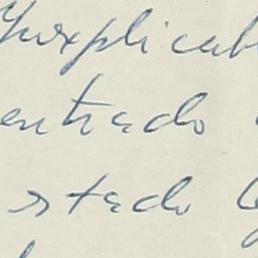 Inexplicab
entrado
estado